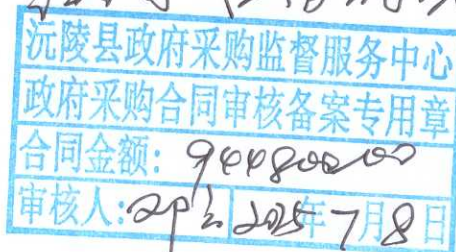 沅陵县政府采购监督服务中心
政府采购合同审核备案专用章
合同金额：944800.00
审核人： 2025年7月8日